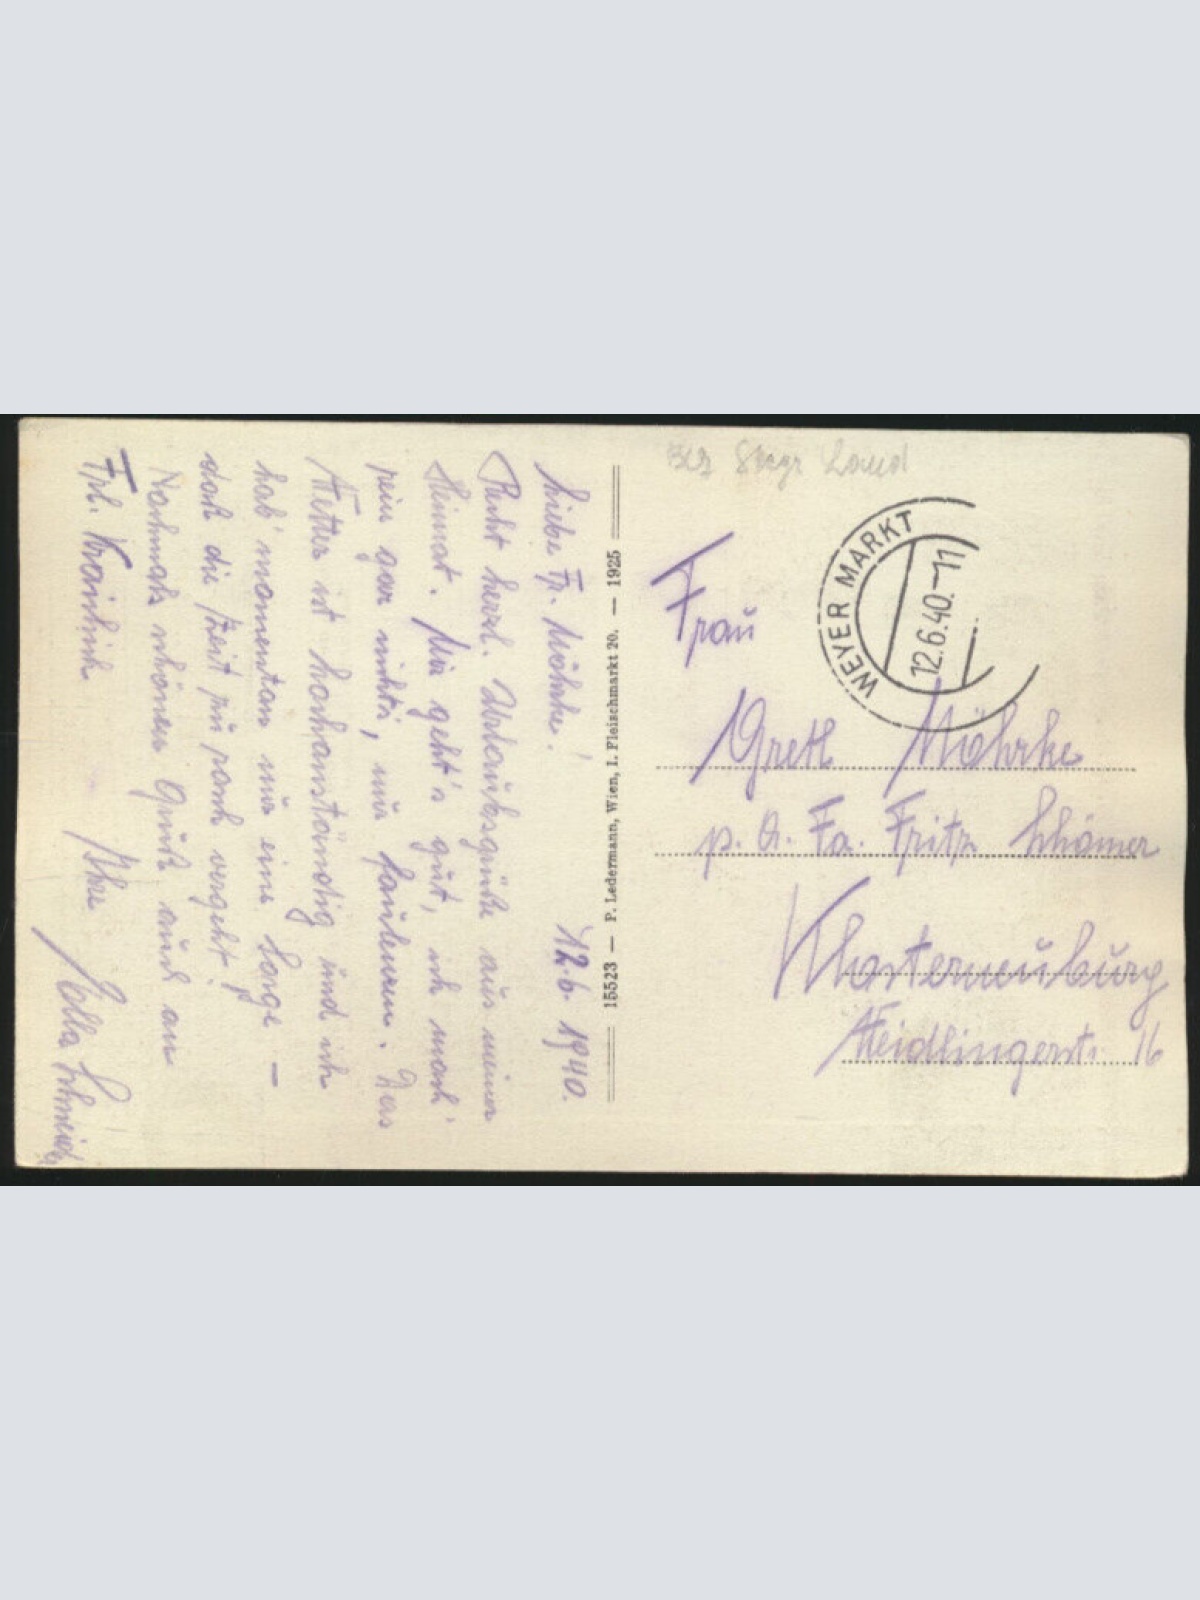 12.6. 1940.
Liebe Fr. Möhrke!
Recht herzl. Urlaubsgrüße aus meiner
Heimat. Mir geht's gut, ich mach'
rein gar nichts, nur faulenzen. Das
Wetter ist hochanständig und ich
hab' momentan nur eine Sorge –
daß die Zeit zu rasch vergeht!
Nochmals schönen Gruß auch an
Frl.
Ihre
Ella Schmid
15523 — P. Ledermann, Wien, I. Fleischmarkt 20. — 1925
Land
WEYER MARKT
12.6.40.-11
Frau
Gretl Möhrke
p. A. Fa. Fritz
Klosterneuburg
Weidlingerstr. 16